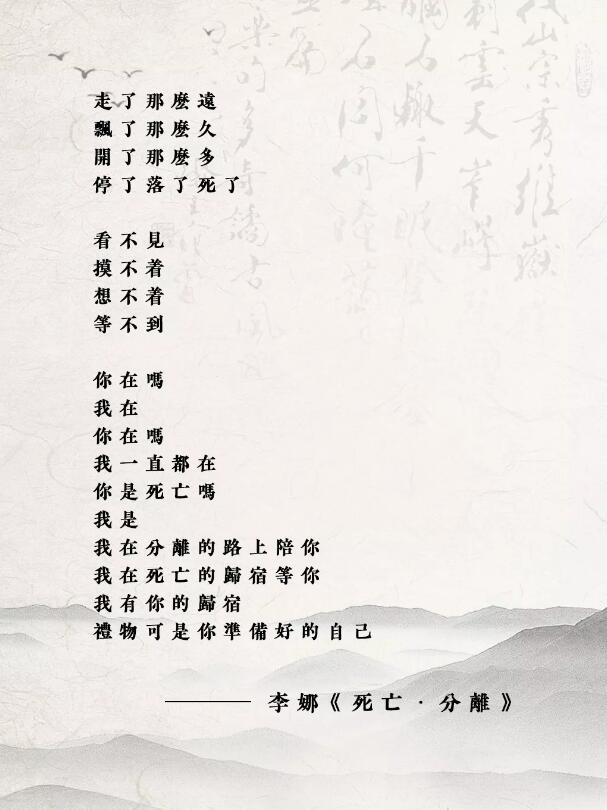 走了那麼遠
飄了那麼久
開了那麼多
停了落了死了
看不見
摸不着
想不着
等不到
你在嗎
我在
你在嗎
我一直都在
你是死亡嗎
我是
我在分離的路上陪你
我在死亡的歸宿等你
我有你的歸宿
禮物可是你準備好的自己
——— 李娜《死亡·分離》